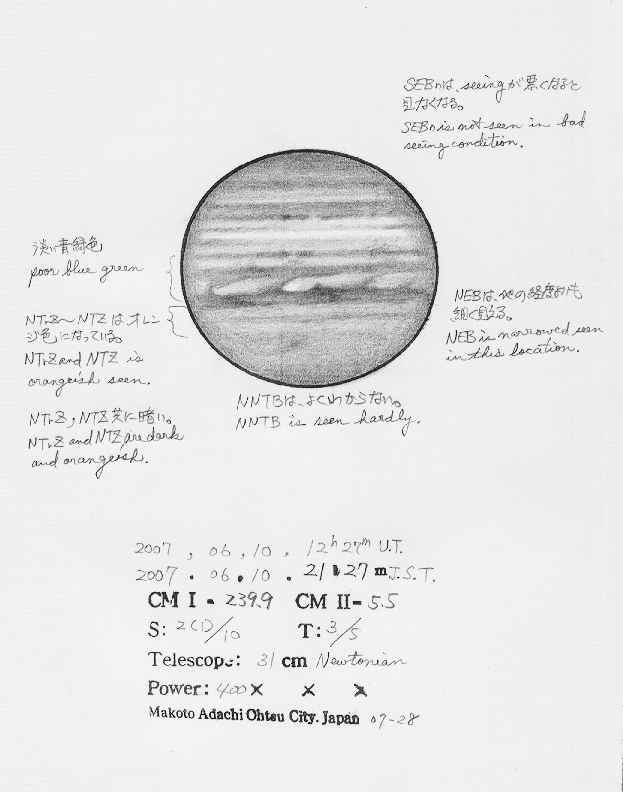 SEBnは、seeingが悪くなると
見えなくなる。
SEBn is not seen in bad
seeing condition.
淡い青緑色
poor blue green
NTrZ〜NTZはオレン
ジ色になっている。
NTrZ and NTZ is
orangeish seen.
NTrZ, NTZ共に暗い。
NTrZ and NTZ are dark
and orangeish.
NEBは、他の経度よりも
細く見える。
NEB is narrowed seen
in this location.
NNTBは、よくわからない。
NNTB is seen hardly.
2007 , 06 , 10 . 12h 27m U.T.
2007 . 06 . 10 . 21 h 27 m J.S.T.
CM I - 239.9 CM II - 5.5
S: 2(1)/10 T: 3/5
Telescope: 31 cm Newtonian
Power: 400× × ×
Makoto Adachi Ohtsu City. Japan 07-28